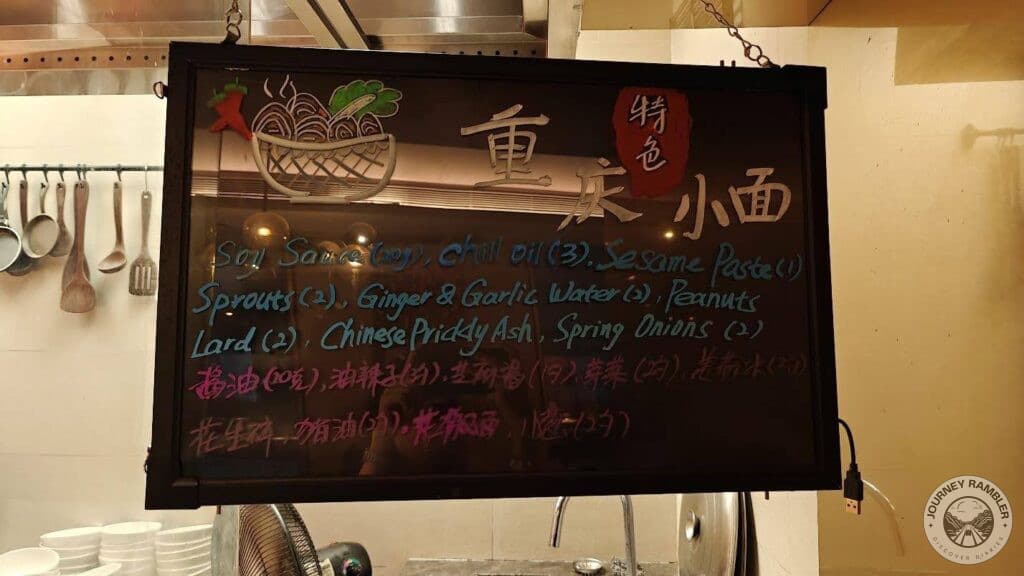 重庆小面
特色
Soy Sauce (10g), Chili Oil (3), Sesame Paste (1)
Sprouts (2), Ginger & Garlic Water (2), Peanuts
Lard (2), Chinese Prickly Ash, Spring Onions (2)
酱油(10克), 油辣子(3勺), 芝麻酱(1勺), 芽菜(2勺),
花生碎, 油(2勺), 花椒面, (2勺)
JOURNEY RAMBLER
DISCOVER DIARIES